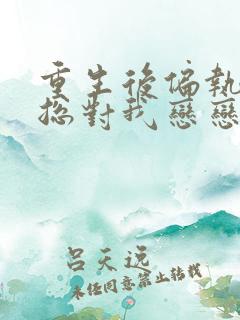 重生後偏執
總對我戀戀
呂天逸
未經同意禁止轉載